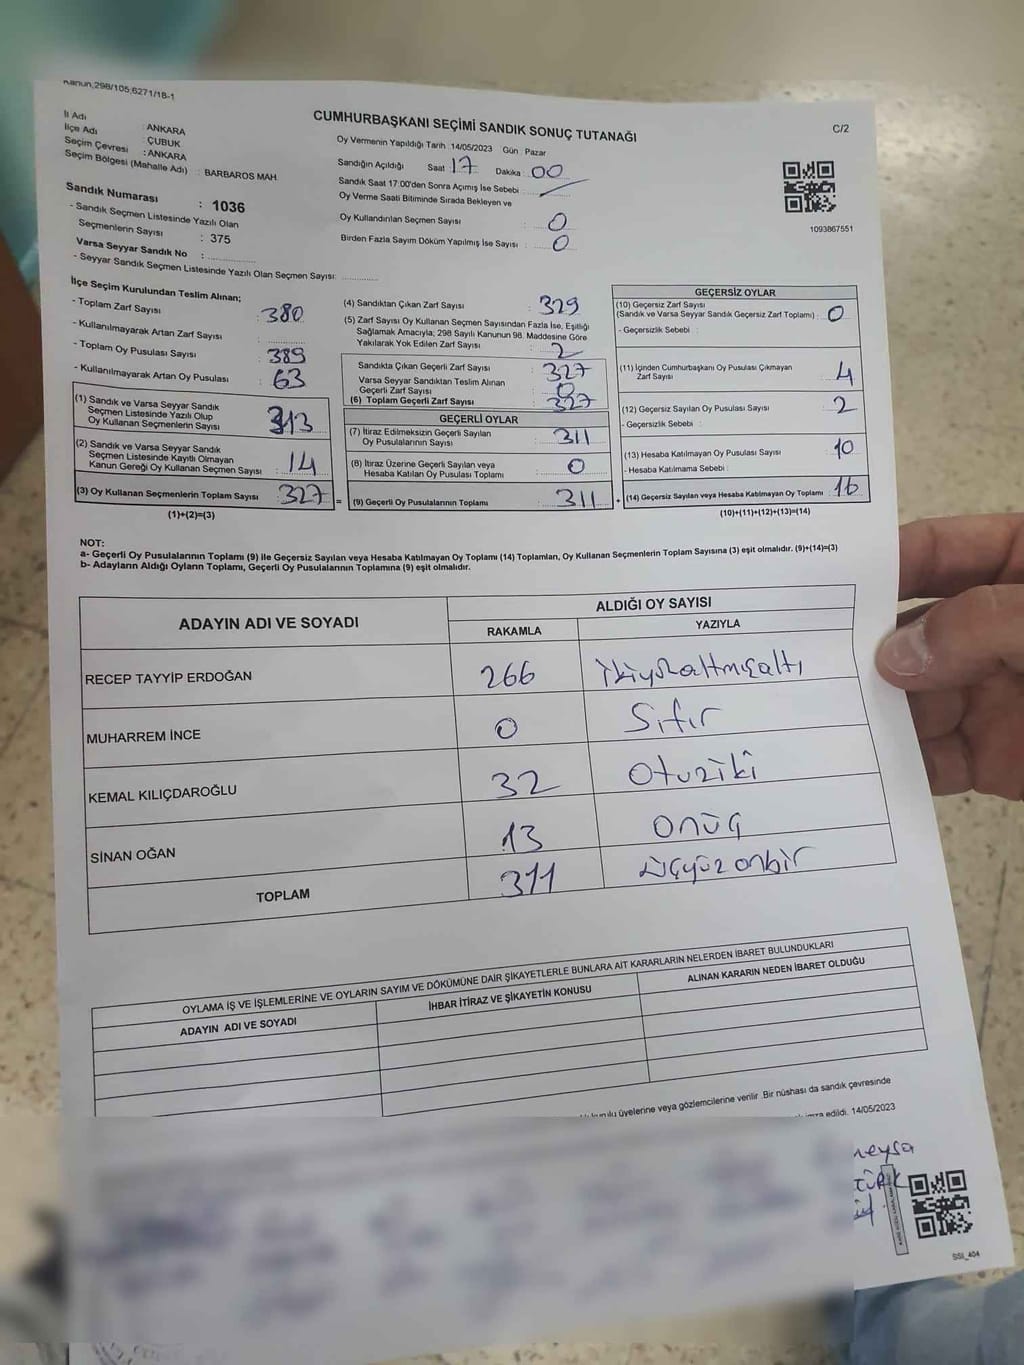 Kanun:298/105;6271/18-1
C/2
CUMHURBAŞKANI SEÇİMİ SANDIK SONUÇ TUTANAĞI
İl Adı : ANKARA
İlçe Adı : ÇUBUK
Seçim Çevresi : ANKARA
Seçim Bölgesi (Mahalle Adı) : BARBAROS MAH.
Sandık Numarası : 1036
- Sandık Seçmen Listesinde Yazılı Olan
Seçmenlerin Sayısı : 375
Varsa Seyyar Sandık No :
- Seyyar Sandık Seçmen Listesinde Yazılı Olan Seçmen Sayısı:
Oy Vermenin Yapıldığı Tarih :14/05/2023 Gün : Pazar
Sandığın Açıldığı Saat 17 Dakika : 00
Sandık Saat 17:00'den Sonra Açmış İse Sebebi :
Oy Verme Saati Bitiminde Sırada Bekleyen ve
Oy Kullandırılan Seçmen Sayısı : 0
Birden Fazla Sayım Döküm Yapılmış İse Sayısı : 0
1093867551
İlçe Seçim Kurulundan Teslim Alınan;
- Toplam Zarf Sayısı : 380
- Kullanılmayarak Artan Zarf Sayısı :
- Toplam Oy Pusulası Sayısı : 389
- Kullanılmayarak Artan Oy Pusulası : 63
(1) Sandık ve Varsa Seyyar Sandık
Seçmen Listesinde Yazılı Olup
Oy Kullanan Seçmenlerin Sayısı : 313
(2) Sandık ve Varsa Seyyar Sandık
Seçmen Listesinde Kayıtlı Olmayan
Kanun Gereği Oy Kullanan Seçmen Sayısı : 14
(3) Oy Kullanan Seçmenlerin Toplam Sayısı : 327
(1)+(2)=(3)
(4) Sandıktan Çıkan Zarf Sayısı : 329
(5) Zarf Sayısı Oy Kullanan Seçmen Sayısından Fazla İse, Eşitliği
Sağlamak Amacıyla; 298 Sayılı Kanunun 98. Maddesine Göre
Yakılarak Yok Edilen Zarf Sayısı : 2
Sandıkta Çıkan Geçerli Zarf Sayısı : 327
Varsa Seyyar Sandıktan Teslim Alınan
Geçerli Zarf Sayısı : 0
(6) Toplam Geçerli Zarf Sayısı : 327
GEÇERLİ OYLAR
(7) İtiraz Edilmeksizin Geçerli Sayılan
Oy Pusulalarının Sayısı : 311
(8) İtiraz Üzerine Geçerli Sayılan veya
Hesaba Katılan Oy Pusulası Toplamı : 0
= (9) Geçerli Oy Pusulalarının Toplamı : 311
GEÇERSİZ OYLAR
(10) Geçersiz Zarf Sayısı
(Sandık ve Varsa Seyyar Sandık Geçersiz Zarf Toplamı) : 0
- Geçersizlik Sebebi :
(11) İçinden Cumhurbaşkanı Oy Pusulası Çıkmayan
Zarf Sayısı : 4
(12) Geçersiz Sayılan Oy Pusulası Sayısı : 2
- Geçersizlik Sebebi :
(13) Hesaba Katılmayan Oy Pusulası Sayısı : 10
- Hesaba Katılmama Sebebi :
+ (14) Geçersiz Sayılan veya Hesaba Katılmayan Oy Toplamı : 16
(10)+(11)+(12)+(13)=(14)
NOT:
a- Geçerli Oy Pusulalarının Toplamı (9) ile Geçersiz Sayılan veya Hesaba Katılmayan Oy Toplamı (14) Toplamları, Oy Kullanan Seçmenlerin Toplam Sayısına (3) eşit olmalıdır. (9)+(14)=(3)
b- Adayların Aldığı Oyların Toplamı, Geçerli Oy Pusulalarının Toplamına (9) eşit olmalıdır.
ADAYIN ADI VE SOYADI ALDIĞI OY SAYISI
RAKAMLA YAZIYLA
RECEP TAYYİP ERDOĞAN 266 ikiyüzaltmışaltı
MUHARREM İNCE 0 Sıfır
KEMAL KILIÇDAROĞLU 32 Otuziki
SİNAN OĞAN 13 Onüç
TOPLAM 311 üçyüzonbir
OYLAMA İŞ VE İŞLEMLERİNE VE OYLARIN SAYIM VE DÖKÜMÜNE DAİR ŞİKAYETLERLE BUNLARA AİT KARARLARIN NELERDEN İBARET BULUNDUKLARI
ADAYIN ADI VE SOYADI İHBAR İTİRAZ VE ŞİKAYETİN KONUSU ALINAN KARARIN NEDEN İBARET OLDUĞU
kurulu üyelerine veya gözlemcilerine verilir .Bir nüshası da sandık çevresinde
imza edildi. 14/05/2023
SSI_404